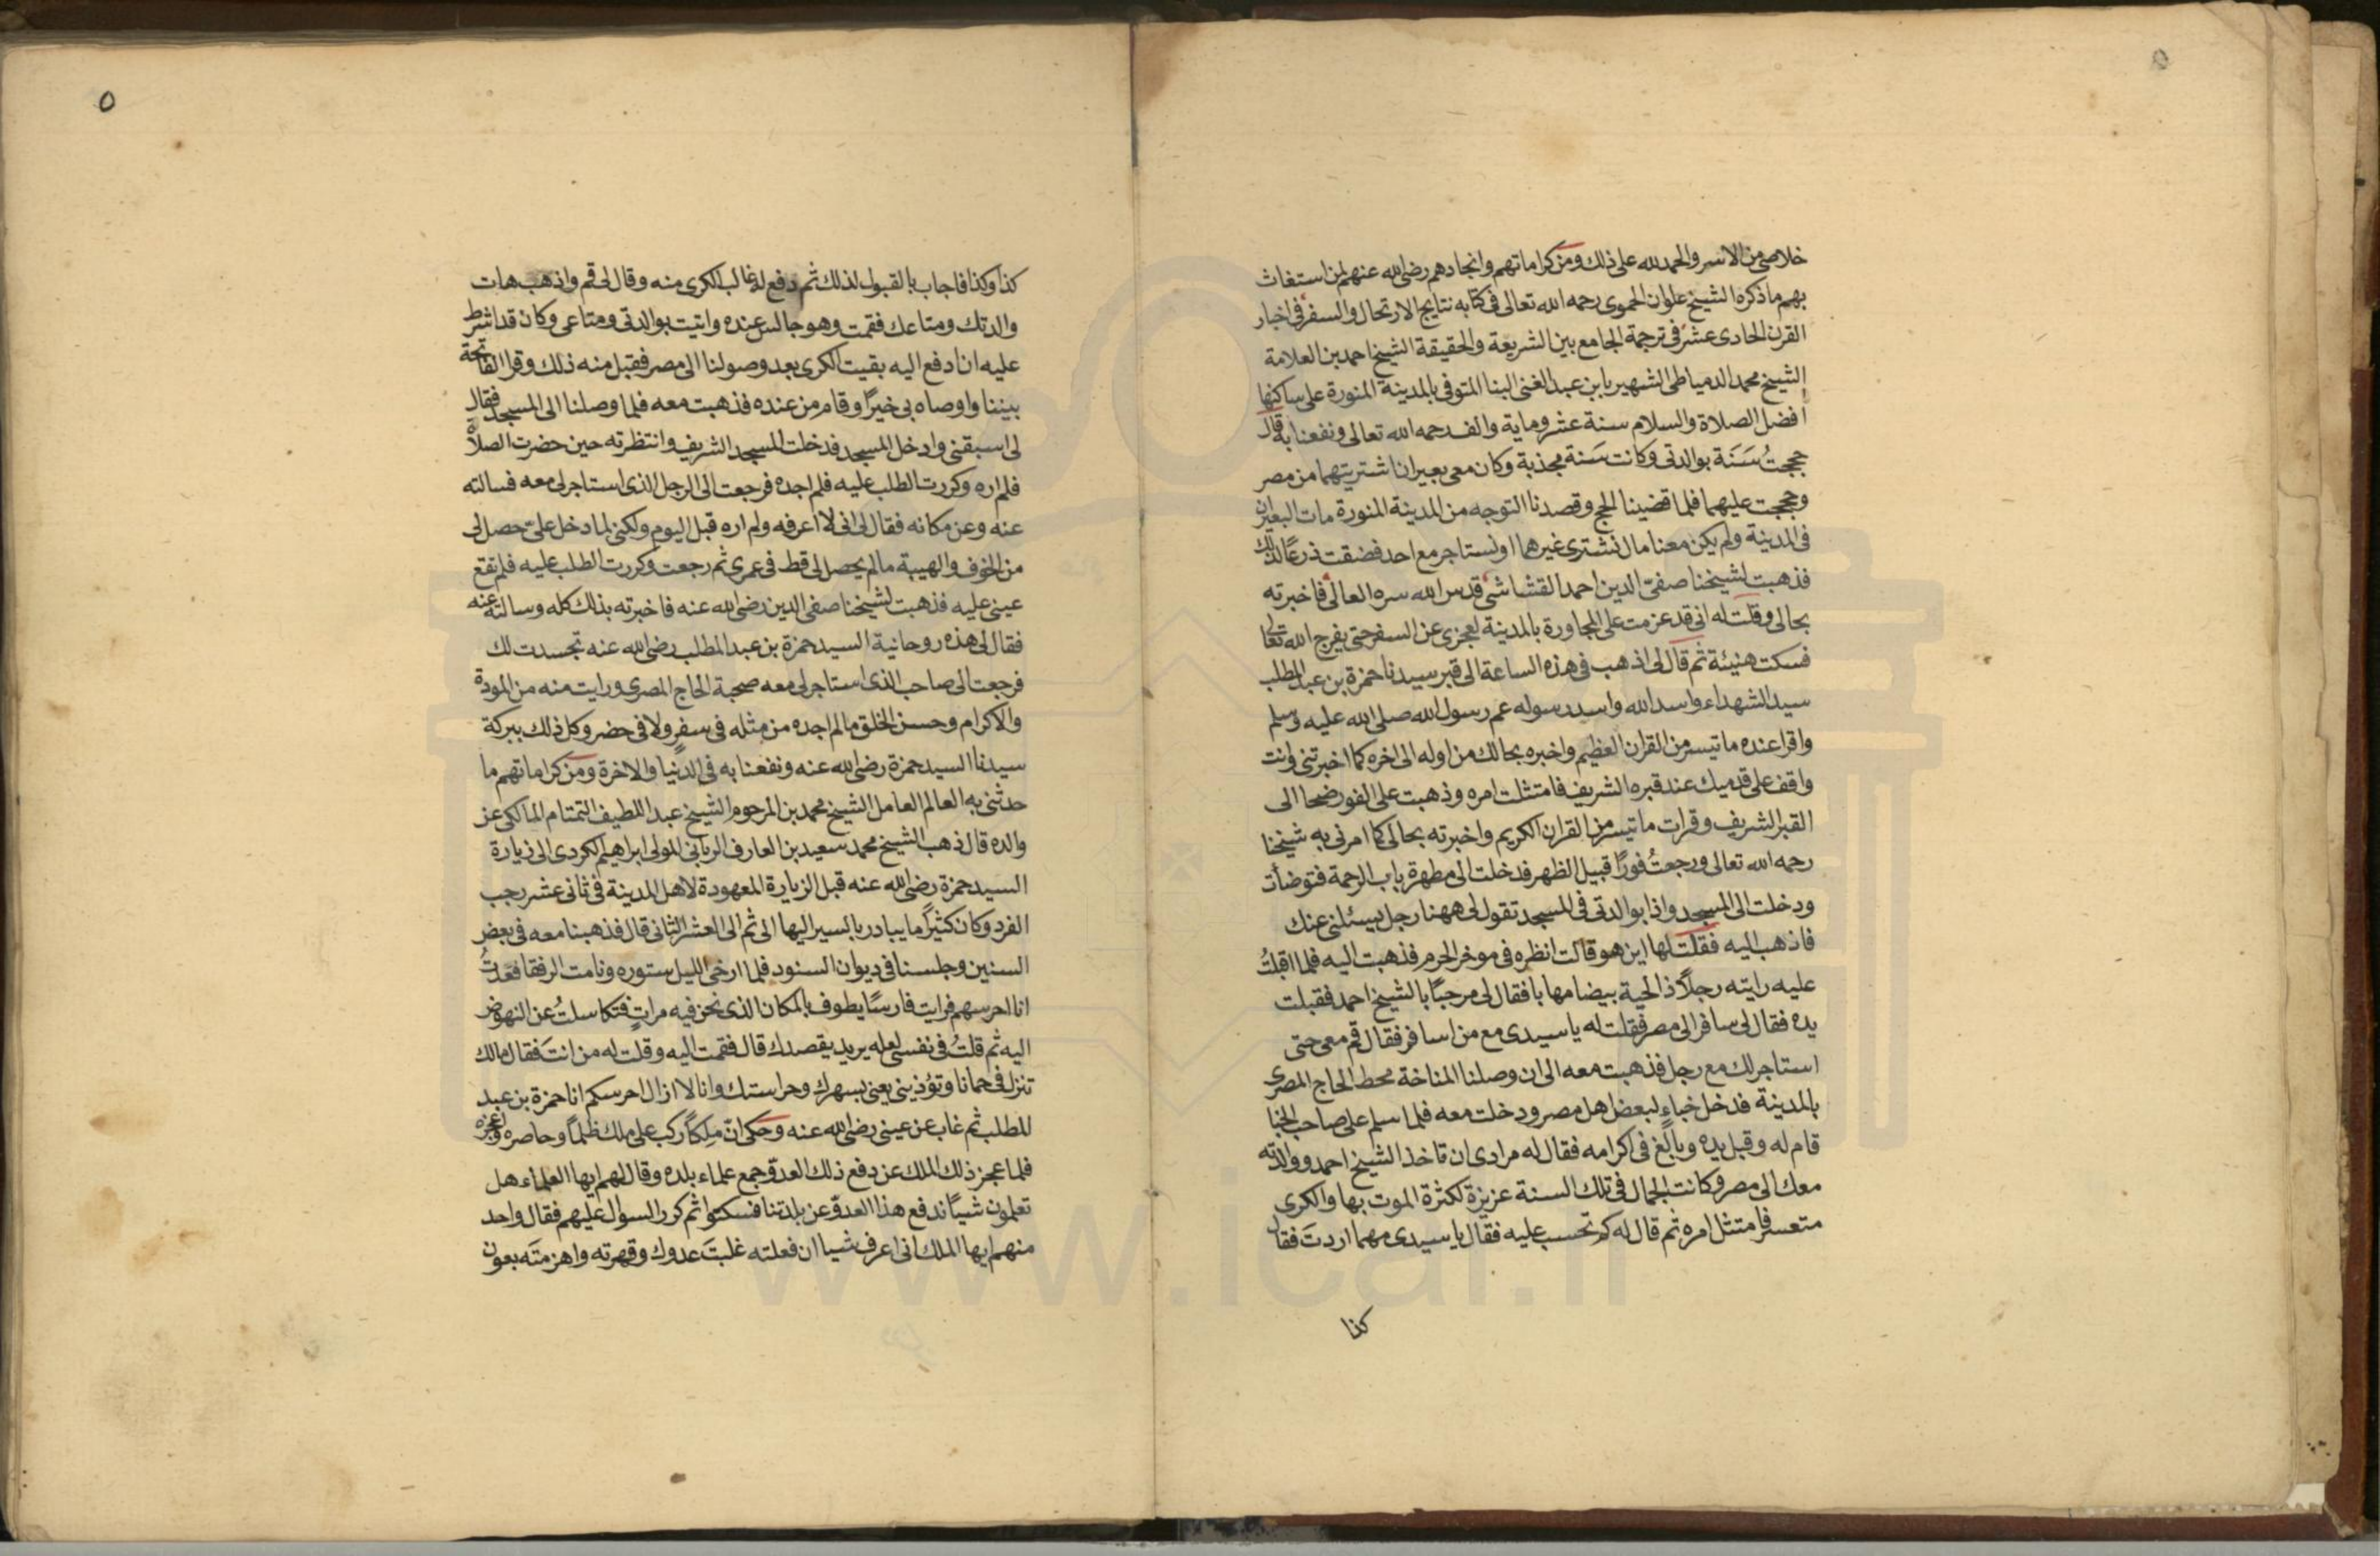 خلاصى من الاسر والحمد لله على ذلك ومن كراماتهم وانجادهم رضى الله عنهم لمن استغاث
بهم ما ذكره الشيخ علوان الحموى رحمه الله تعالى فى كتابه نتايج الارتحال والسفر فى اخبار
القرن الحادى عشر فى ترجمة الجامع بين الشريعة والحقيقة الشيخ احمد بن العلامة
الشيخ محمد الدمياطى الشهير بابن عبد الغنى البنا المتوفى بالمدينة المنورة على ساكنها
افضل الصلاة والسلام سنة عشر وماية والف رحمه الله تعالى ونفعنا به قال
حججتُ سَنَة بوالدتى وكانت سَنة مجذبة وكان معى بعيران اشتريتهما من مصر
وحججت عليهما فلما قضينا الحج وقصدنا التوجه من المدينة المنورة مات البعيران
فى المدينة ولم يكن معنا مال نشترى غيرهما او نستاجر مع احد فضقت ذرعًا لذلك
فذهبت لشيخنا صفىّ الدين احمد القشاشى قدس الله سره العالى فاخبرته
بحالى وقلت له انى قد عزمت على المجاورة بالمدينة لعجزى عن السفر حتى يفرج الله تعالى
فسكت هنيئة ثم قال لى اذهب فى هذه الساعة الى قبر سيدنا حمزة بن عبد المطلب
سيد الشهداء واسد الله واسد رسوله عم رسول الله صلى الله عليه وسلم
واقرا عنده ما تيسر من القران العظيم واخبره بحالك من اوله الى اخره كما اخبرتنى وانت
واقف على قدميك عند قبره الشريف فامتثلت امره وذهبت على الفور ضحا الى
القبر الشريف وقرات ما تيسر من القران الكريم واخبرته بحالى كما امرنى به شيخنا
رحمه الله تعالى ورجعتُ فورًا قبيل الظهر فدخلت الى مطهرة باب الرحمة فتوضأت
ودخلت الى المسجد واذا بوالدتى فى المسجد تقول لى ههنا رجل يسئلنى عنك
فاذهب اليه فقلت لها اين هو قالت انظره فى موخر الحرم فذهبت اليه فلما اقبلتُ
عليه رايته رجلًا ذا لحية بيضا مهابا فقال لى مرحبًا بالشيخ احمد فقبلت
يده فقال لى سافر الى مصر فقلت له يا سيدى مع من اسافر فقال قم معى حتى
استاجر لك مع رجل فذهبت معه الى ان وصلنا المناخة محط الحاج المصرى
بالمدينة فدخل خباءٍ لبعض اهل مصر ودخلت معه فلما سلم على صاحب الخبا
قام له وقبل يده وبالغ فى اكرامه فقال له مرادى ان تاخذ الشيخ احمد ووالدته
معك الى مصر وكانت الجمال فى تلك السنة عزيزة لكثرة الموت بها والكرى
متعسر فامتثل امره ثم قال له كم تحسب عليه فقال يا سيدى مهما اردتَ فقال
كذا
٥
كذا وكذا فاجاب بالقبول لذلك ثم دفع له غالب الكرى منه وقال لى قم واذهب هات
والدتك ومتاعك فقمت وهو جالس عنده واتيت بوالدتى ومتاعى وكان قد اشرط
عليه ان ادفع اليه بقيت الكرى بعد وصولنا الى مصر فقبل منه ذلك وقرا الفاتحة
بيننا واوصاه بى خيرًا وقام من عنده فذهبت معه فلما وصلنا الى المسجد فقال
لى اسبقنى وادخل المسجد فدخلت المسجد الشريف وانتظرته حين حضرت الصلاة
فلم اره وكررت الطلب عليه فلم اجده فرجعت الى الرجل الذى استاجر لى معه فسالته
عنه وعن مكانه فقال لى انى لا اعرفه ولم اره قبل اليوم ولكنى لما دخل علىّ حصل لى
من الخوف والهيبة ما لم يحصل لى قط فى عمرى ثم رجعت وكررت الطلب عليه فلم تقع
عينى عليه فذهبت لشيخنا صفى الدين رضى الله عنه فاخبرته بذلك كله وسالته عنه
فقال لى هذه روحانية السيد حمزة بن عبد المطلب رضى الله عنه تجسدت لك
فرجعت الى صاحب الذى استاجر لى معه صحبة الحاج المصرى ورايت منه من المودة
والاكرام وحسن الخلق ما لم اجده من مثله فى سفرٍ ولا فى حضر وكل ذلك ببركة
سيدنا السيد حمزة رضى الله عنه ونفعنا به فى الدنيا والاخرة ومن كراماتهم ما
حدثنى به العالم العامل الشيخ محمد بن المرحوم الشيخ عبد اللطيف التمتام المالكى عن
والده قال ذهب الشيخ محمد سعيد بن العارف الربانى المولى ابراهيم الكردى الى زيارة
السيد حمزة رضى الله عنه قبل الزيارة المعهودة لاهل المدينة فى ثانى عشر رجب
الفرد وكان كثيرًا ما يبادر بالسير اليها الى ثم الى العشر الثانى قال فذهبنا معه فى بعض
السنين وجلسنا فى ديوان السنود فلما ارخى الليل ستوره ونامت الرفقا فقعدتُ
انا احرسهم فرايت فارسًا يطوف بالمكان الذى نحن فيه مراتٍ فتكاسلتُ عن النهوض
اليه ثم قلتُ فى نفسى لعله يريد يقصدك قال فقمت اليه وقلت له من انتَ فقال مالك
تنزل فى حمانا وتؤذينى يعنى بسهرك وحراستك وانا لا ازال احرسكم انا حمزة بن عبد
المطلب ثم غاب عن عينى رضى الله عنه وحكى انّ ملِكًا ركب على ملك ظلمًا وحاصره واعجزه
فلما عجز ذلك الملك عن دفع ذلك العدوّ جمع علماء بلده وقال لهم ايها العلماء هل
تعلمون شيئًا ندفع هذا العدوّ عن بلدتنا فسكتوا ثم كرر السوال عليهم فقال واحد
منهم ايها الملك انى اعرف شيا ان فعلته غلبتَ عدوك وقهرته واهزمتَه بعون
www.ical.ir